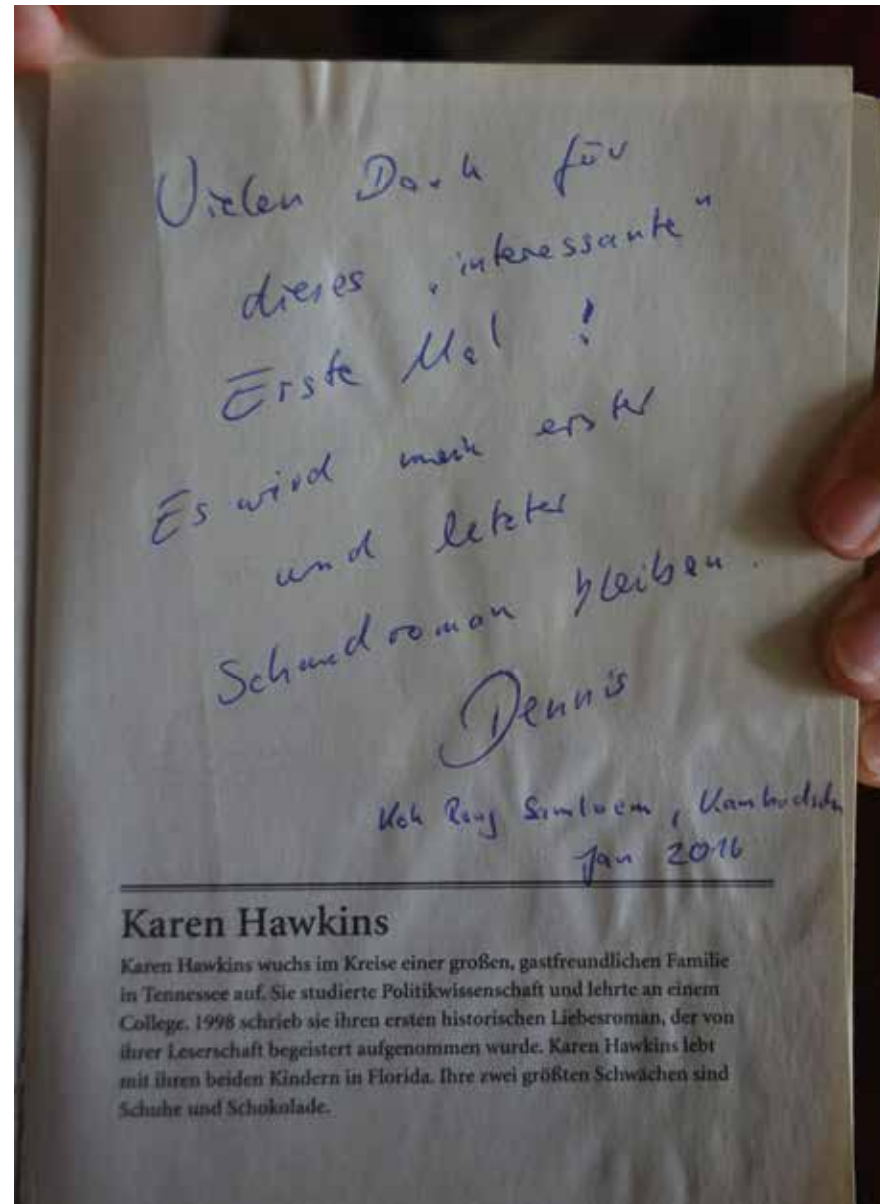 Vielen Dank für
dieses „interessante“
Erste Mal !
Es wird mein erster
und letzter
Schundroman bleiben.
Dennis
Koh Rong Samloem, Kambodscha
Jan 2016
Karen Hawkins
Karen Hawkins wuchs im Kreise einer großen, gastfreundlichen Familie
in Tennessee auf. Sie studierte Politikwissenschaft und lehrte an einem
College. 1998 schrieb sie ihren ersten historischen Liebesroman, der von
ihrer Leserschaft begeistert aufgenommen wurde. Karen Hawkins lebt
mit ihren beiden Kindern in Florida. Ihre zwei größten Schwächen sind
Schuhe und Schokolade.